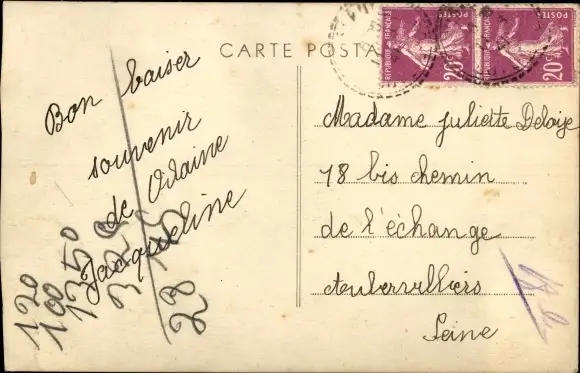 CARTE POSTA
REPUBLIQUE FRANÇAISE
POSTES
20c
REPUBLIQUE FRANÇAISE
POSTES
20c
Bon baiser
souvenir
de
Jacqueline
120
100
1350
28
Madame Juliette
18 bis chemin
de l'échange
Aubervilliers
Seine